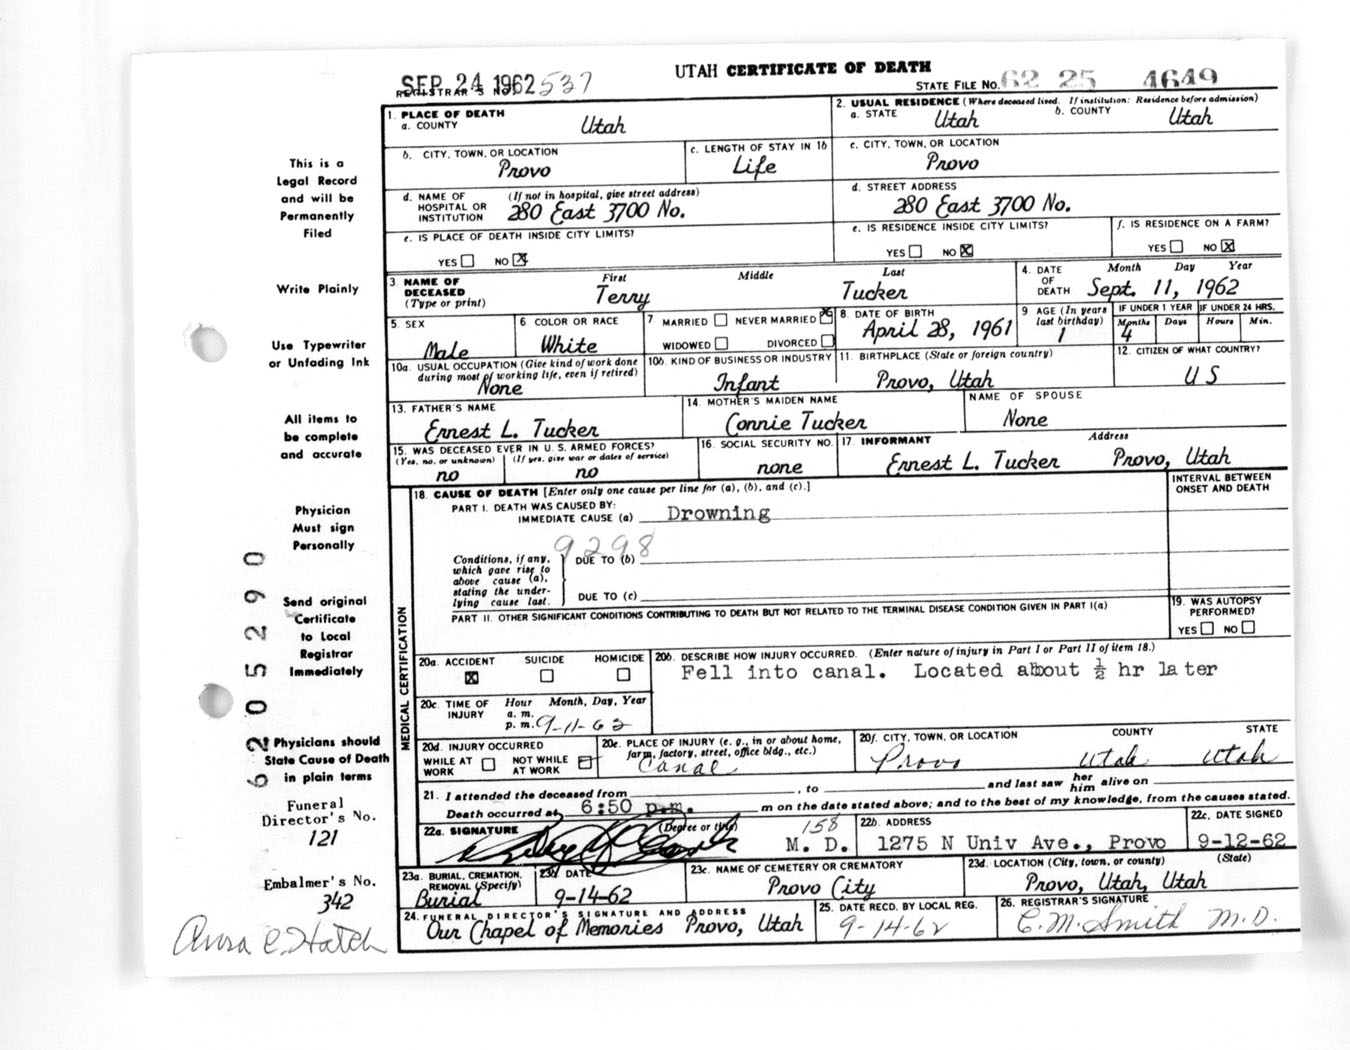 UTAH CERTIFICATE OF DEATH
SEP 24 1962 537
REGISTRAR'S NO.
STATE FILE NO. 62 25 4649
This is a
Legal Record
and will be
Permanently
Filed
Write Plainly
Use Typewriter
or Unfading Ink
All items to
be complete
and accurate
Physician
Must sign
Personally
Send original
Certificate
to Local
Registrar
Immediately
Physicians should
State Cause of Death
in plain terms
Funeral
Director's No.
121
Embalmer's No.
342
62 05290
1. PLACE OF DEATH
a. COUNTY Utah
2. USUAL RESIDENCE (Where deceased lived. If institution: Residence before admission)
a. STATE Utah b. COUNTY Utah
b. CITY, TOWN, OR LOCATION
Provo
c. LENGTH OF STAY IN 1b
Life
c. CITY, TOWN, OR LOCATION
Provo
d. NAME OF HOSPITAL OR INSTITUTION (If not in hospital, give street address)
280 East 3700 No.
d. STREET ADDRESS
280 East 3700 No.
e. IS PLACE OF DEATH INSIDE CITY LIMITS?
YES NO X
e. IS RESIDENCE INSIDE CITY LIMITS?
YES NO X
f. IS RESIDENCE ON A FARM?
YES NO X
3. NAME OF DECEASED (Type or print)
First Middle Last
Terry Tucker
4. DATE OF DEATH Month Day Year
Sept. 11, 1962
5. SEX
Male
6 COLOR OR RACE
White
7 MARRIED NEVER MARRIED X
WIDOWED DIVORCED
8. DATE OF BIRTH
April 28, 1961
9 AGE (In years last birthday)
1
IF UNDER 1 YEAR IF UNDER 24 HRS.
Months Days Hours Min.
4
10a. USUAL OCCUPATION (Give kind of work done during most of working life, even if retired)
None
10b. KIND OF BUSINESS OR INDUSTRY
Infant
11. BIRTHPLACE (State or foreign country)
Provo, Utah
12. CITIZEN OF WHAT COUNTRY?
US
13. FATHER'S NAME
Ernest L. Tucker
14. MOTHER'S MAIDEN NAME
Connie Tucker
NAME OF SPOUSE
None
15. WAS DECEASED EVER IN U. S. ARMED FORCES?
(Yes, no, or unknown) (If yes, give war or dates of service)
no no
16. SOCIAL SECURITY NO.
none
17. INFORMANT Address
Ernest L. Tucker Provo, Utah
MEDICAL CERTIFICATION
18. CAUSE OF DEATH [Enter only one cause per line for (a), (b), and (c).]
INTERVAL BETWEEN
ONSET AND DEATH
PART I. DEATH WAS CAUSED BY:
IMMEDIATE CAUSE (a) Drowning
9298
Conditions, if any, which gave rise to above cause (a), stating the underlying cause last.
DUE TO (b)
DUE TO (c)
PART II. OTHER SIGNIFICANT CONDITIONS CONTRIBUTING TO DEATH BUT NOT RELATED TO THE TERMINAL DISEASE CONDITION GIVEN IN PART I(a)
19. WAS AUTOPSY
PERFORMED?
YES NO
20a. ACCIDENT SUICIDE HOMICIDE
X
20b. DESCRIBE HOW INJURY OCCURRED. (Enter nature of injury in Part I or Part II of item 18.)
Fell into canal. Located about ½ hr later
20c. TIME OF INJURY Hour Month, Day, Year
a. m.
p. m. 9-11-62
20d. INJURY OCCURRED
WHILE AT WORK NOT WHILE AT WORK
20e. PLACE OF INJURY (e. g., in or about home, farm, factory, street, office bldg., etc.)
Canal
20f. CITY, TOWN, OR LOCATION COUNTY STATE
Provo Utah Utah
21. I attended the deceased from , to and last saw her him alive on
Death occurred at 6:50 p.m. m on the date stated above; and to the best of my knowledge, from the causes stated.
22a. SIGNATURE (Degree or title)
158
M. D.
22b. ADDRESS
1275 N Univ Ave., Provo
22c. DATE SIGNED
9-12-62
23a. BURIAL, CREMATION, REMOVAL (Specify)
Burial
23b. DATE
9-14-62
23c. NAME OF CEMETERY OR CREMATORY
Provo City
23d. LOCATION (City, town, or county) (State)
Provo, Utah, Utah
24. FUNERAL DIRECTOR'S SIGNATURE AND ADDRESS
Our Chapel of Memories Provo, Utah
25. DATE RECD. BY LOCAL REG.
9-14-62
26. REGISTRAR'S SIGNATURE
C. M. Smith M.D.
C. Hatch